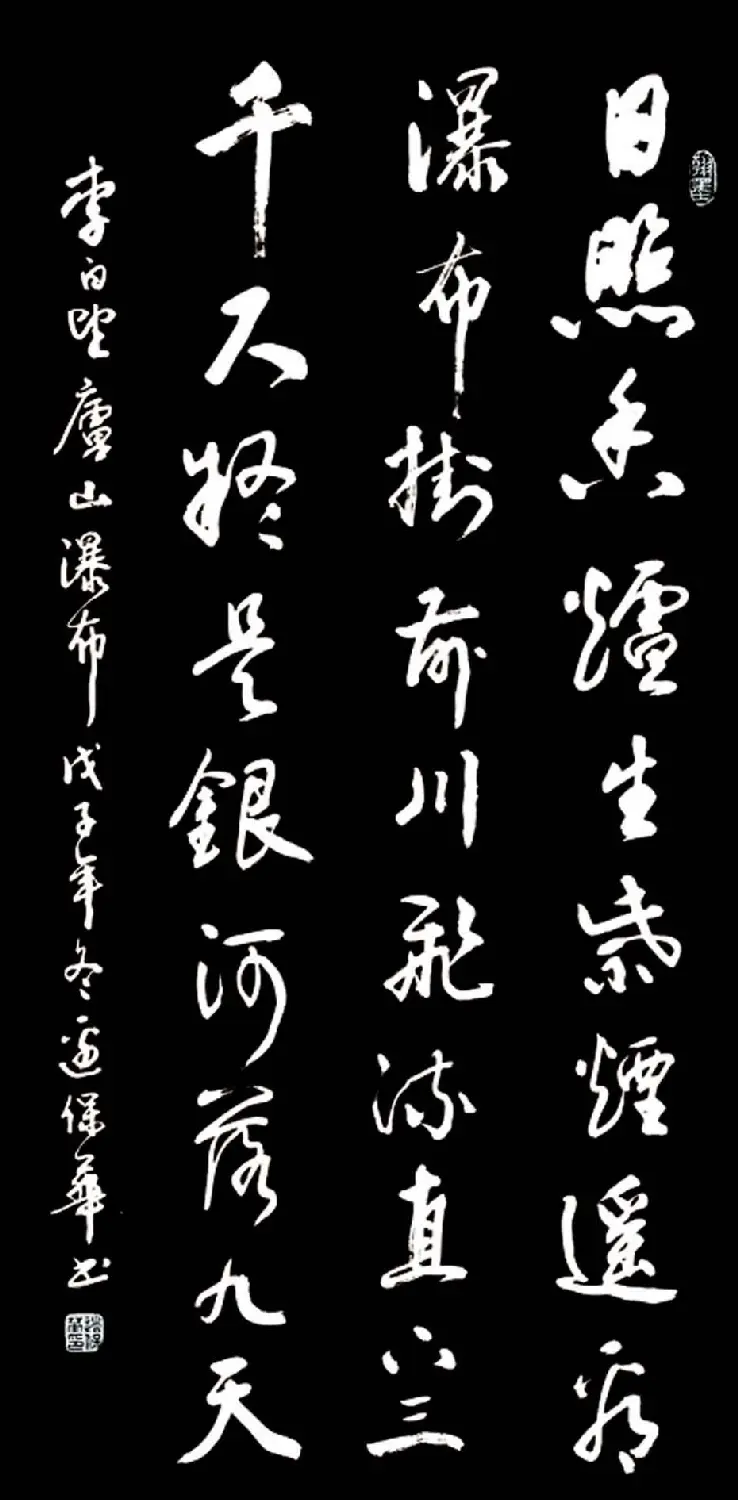 日照香爐生紫煙遙看
瀑布掛前川飛流直下三
千尺疑是銀河落九天
李白望廬山瀑布戊子年冬邊保華書